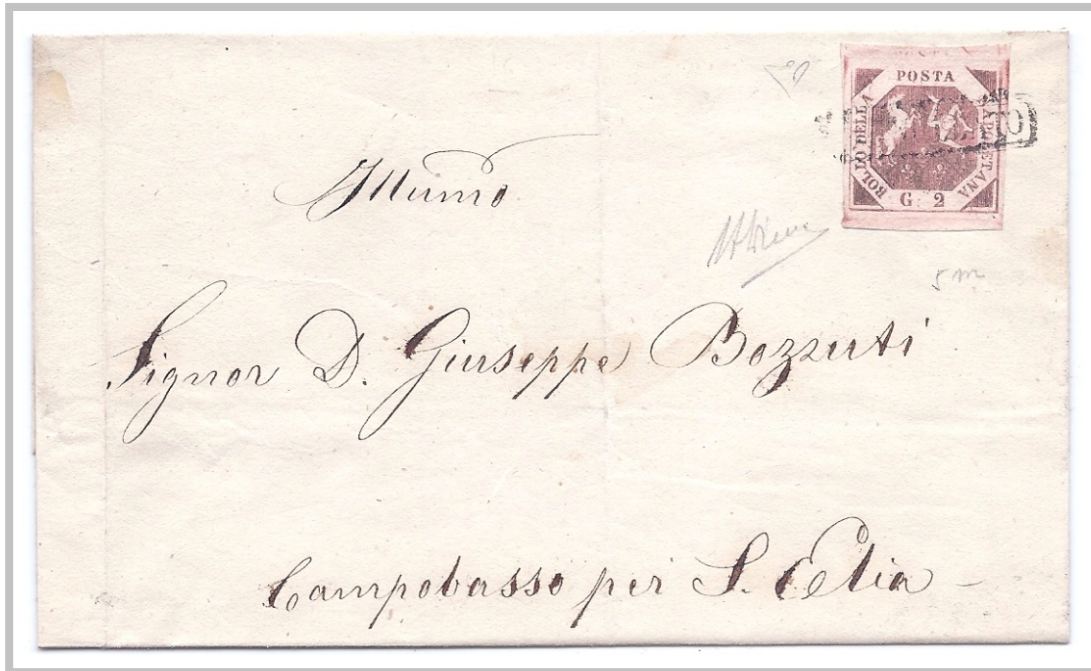 POSTA
BOLLO DELLA
NAPOLETANA
G. 2
Signor D. Giuseppe Bozzuti
Campobasso per S. Elia
5 m